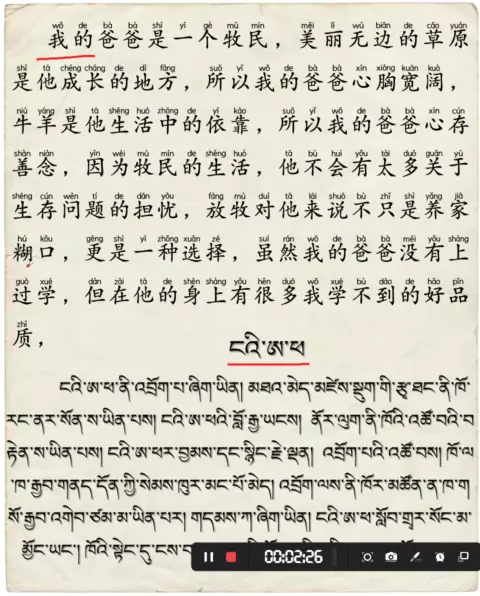 wǒ de bà bà shì yī gè mù mín měi lì wú biān de cǎo yuán
我的爸爸是一个牧民，美丽无边的草原
shì tā chéng cháng de dì fāng suǒ yǐ wǒ de bà bà xīn xiōng kuān kuò
是他成长的地方，所以我的爸爸心胸宽阔，
niú yáng shì tā shēng huó zhōng de yī kào suǒ yǐ wǒ de bà bà xīn cún
牛羊是他生活中的依靠，所以我的爸爸心存
shàn niàn yīn wèi mù mín de shēng huó tā bù huì yǒu tài duō guān yú
善念，因为牧民的生活，他不会有太多关于
shēng cún wèn tí de dān yōu fàng mù duì tā lái shuō bù zhǐ shì yǎng jiā
生存问题的担忧，放牧对他来说不只是养家
hú kǒu gèng shì yī zhǒng xuǎn zé suī rán wǒ de bà bà méi yǒu shàng
糊口，更是一种选择，虽然我的爸爸没有上
guò xué dàn zài tā de shēn shàng yǒu hěn duō wǒ xué bù dào de hǎo pǐn
过学，但在他的身上有很多我学不到的好品
zhì
质，
ངའི་ཨ་ཕ
ངའི་ཨ་ཕ་ནི་འབྲོག་པ་ཞིག་ཡིན། མཐའ་མེད་མཛེས་སྡུག་གི་རྩྭ་ཐང་ནི་ཁོ་
རང་ནར་སོན་ས་ཡིན་པས། ངའི་ཨ་ཕའི་བློ་རྒྱ་ཡངས། ནོར་ལུག་ནི་ཁོའི་འཚོ་བའི་བ་
རྟེན་ས་ཡིན་པས། ངའི་ཨ་ཕར་བྱམས་དང་སྙིང་རྗེ་ལྡན། འབྲོག་པའི་འཚོ་བས། ཁོ་ལ་
་ཁ་རྒྱབ་གནད་དོན་ཀྱི་སེམས་ཁུར་མང་པོ་མེད། འབྲོག་ལས་ནི་ཁོར་མཚོན་ན་ཁ་ག
སོ་རྒྱབ་འགེབ་ཙམ་མ་ཡིན་པར། གདམས་ཀ་ཞིག་ཡིན། ངའི་ཨ་ཕ་སློབ་གྲྭར་སོང་མ་
མྱོང་ཡང་། ཁོའི་སྟེང་དུ་ངས་བ
00:02:26